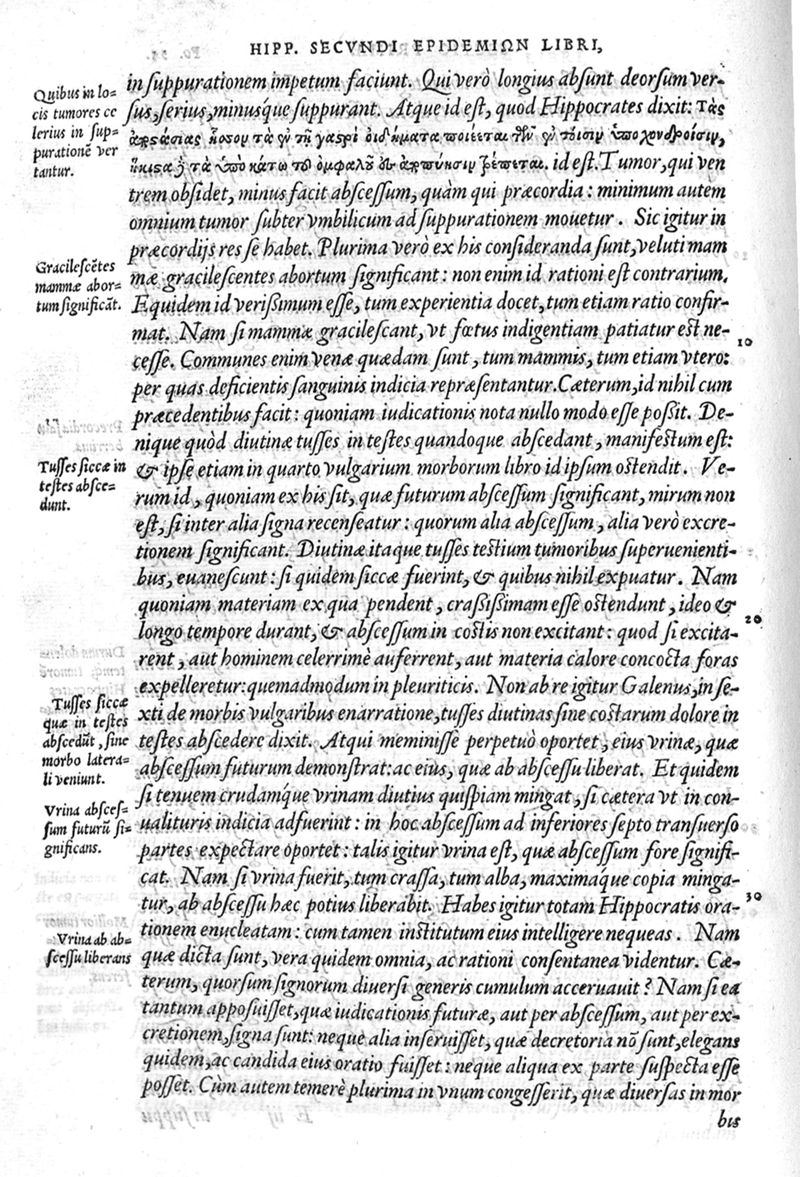 HIPP. SECVNDI EPIDEMIΩN LIBRI,
Quibus in lo=
cis tumores ce
lerius in sup=
puratione ver
tantur.
in suppurationem impetum faciunt. Qui verò longius absunt deorsum ver-
sus, serius, minusq́ue suppurant. Atque id est, quod Hippocrates dixit: τὰς
ἧσσον τὰ ἐν τῇ γαστρὶ οἰδήματα ποιέεται τῶν ἐν τοῖσιν ὑποχονδρίοισιν,
ἥκιστα δὲ τὰ ὑποκάτω τοῦ ὀμφαλοῦ id est. Tumor, qui ven
trem obsidet, minus facit abscessum, quàm qui præcordia: minimum autem
omnium tumor subter vmbilicum ad suppurationem mouetur. Sic igitur in
præcordijs res se habet. Plurima verò ex his consideranda sunt, veluti mam
Gracilescẽtes
mammæ abor=
tum significãt.
mæ gracilescentes abortum significant: non enim id rationi est contrarium.
Equidem id verissimum esse, tum experientia docet, tum etiam ratio confir-
mat. Nam si mammæ gracilescant, vt fœtus indigentiam patiatur est ne-
10
cesse. Communes enim venæ quædam sunt, tum mammis, tum etiam vtero:
per quas deficientis sanguinis indicia repræsentantur. Cæterum, id nihil cum
præcedentibus facit: quoniam iudicationis nota nullo modo esse possit. De-
nique quòd diutinæ tusses in testes quandoque abscedant, manifestum est:
Tusses siccæ in
testes absce=
dunt.
& ipse etiam in quarto vulgarium morborum libro id ipsum ostendit. Ve-
rum id, quoniam ex his sit, quæ futurum abscessum significant, mirum non
est, si inter alia signa recenseatur: quorum alia abscessum, alia verò excre-
tionem significant. Diutinæ itaque tusses testium tumoribus superuenienti-
bus, euanescunt: si quidem siccæ fuerint, & quibus nihil expuatur. Nam
quoniam materiam ex qua pendent, crassissimam esse ostendunt, ideo &
20
longo tempore durant, & abscessum in costis non excitant: quod si excita-
rent, aut hominem celerrimè auferrent, aut materia calore concocta foras
expelleretur: quemadmodum in pleuriticis. Non ab re igitur Galenus, in se-
Tusses siccæ
quæ in testes
abscedũt, sine
morbo latera=
li veniunt.
xti de morbis vulgaribus enarratione, tusses diutinas sine costarum dolore in
testes abscedere dixit. Atqui meminisse perpetuò oportet, eius vrinæ, quæ
abscessum futurum demonstrat: ac eius, quæ ab abscessu liberat. Et quidem
si tenuem crudamq́ue vrinam diutius quispiam mingat, si cætera vt in con-
Vrina absces=
sum futurũ si=
gnificans.
ualituris indicia adfuerint: in hoc abscessum ad inferiores septo transuerso
partes expectare oportet: talis igitur vrina est, quæ abscessum fore signifi-
cat. Nam si vrina fuerit, tum crassa, tum alba, maximaq́ue copia minga-
30
tur, ab abscessu hæc potius liberabit. Habes igitur totam Hippocratis ora-
Vrina ab ab=
scessu liberans
tionem enucleatam: cum tamen institutum eius intelligere nequeas. Nam
quæ dicta sunt, vera quidem omnia, ac rationi consentanea videntur. Cæ-
terum, quorsum signorum diuersi generis cumulum aceruauit? Nam si ea
tantum apposuisset, quæ iudicationis futuræ, aut per abscessum, aut per ex-
cretionem, signa sunt: neque alia inseruisset, quæ decretoria nõ sunt, elegans
quidem, ac candida eius oratio fuisset: neque aliqua ex parte suspecta esse
posset. Cùm autem temerè plurima in vnum congesserit, quæ diuersas in mor
bis